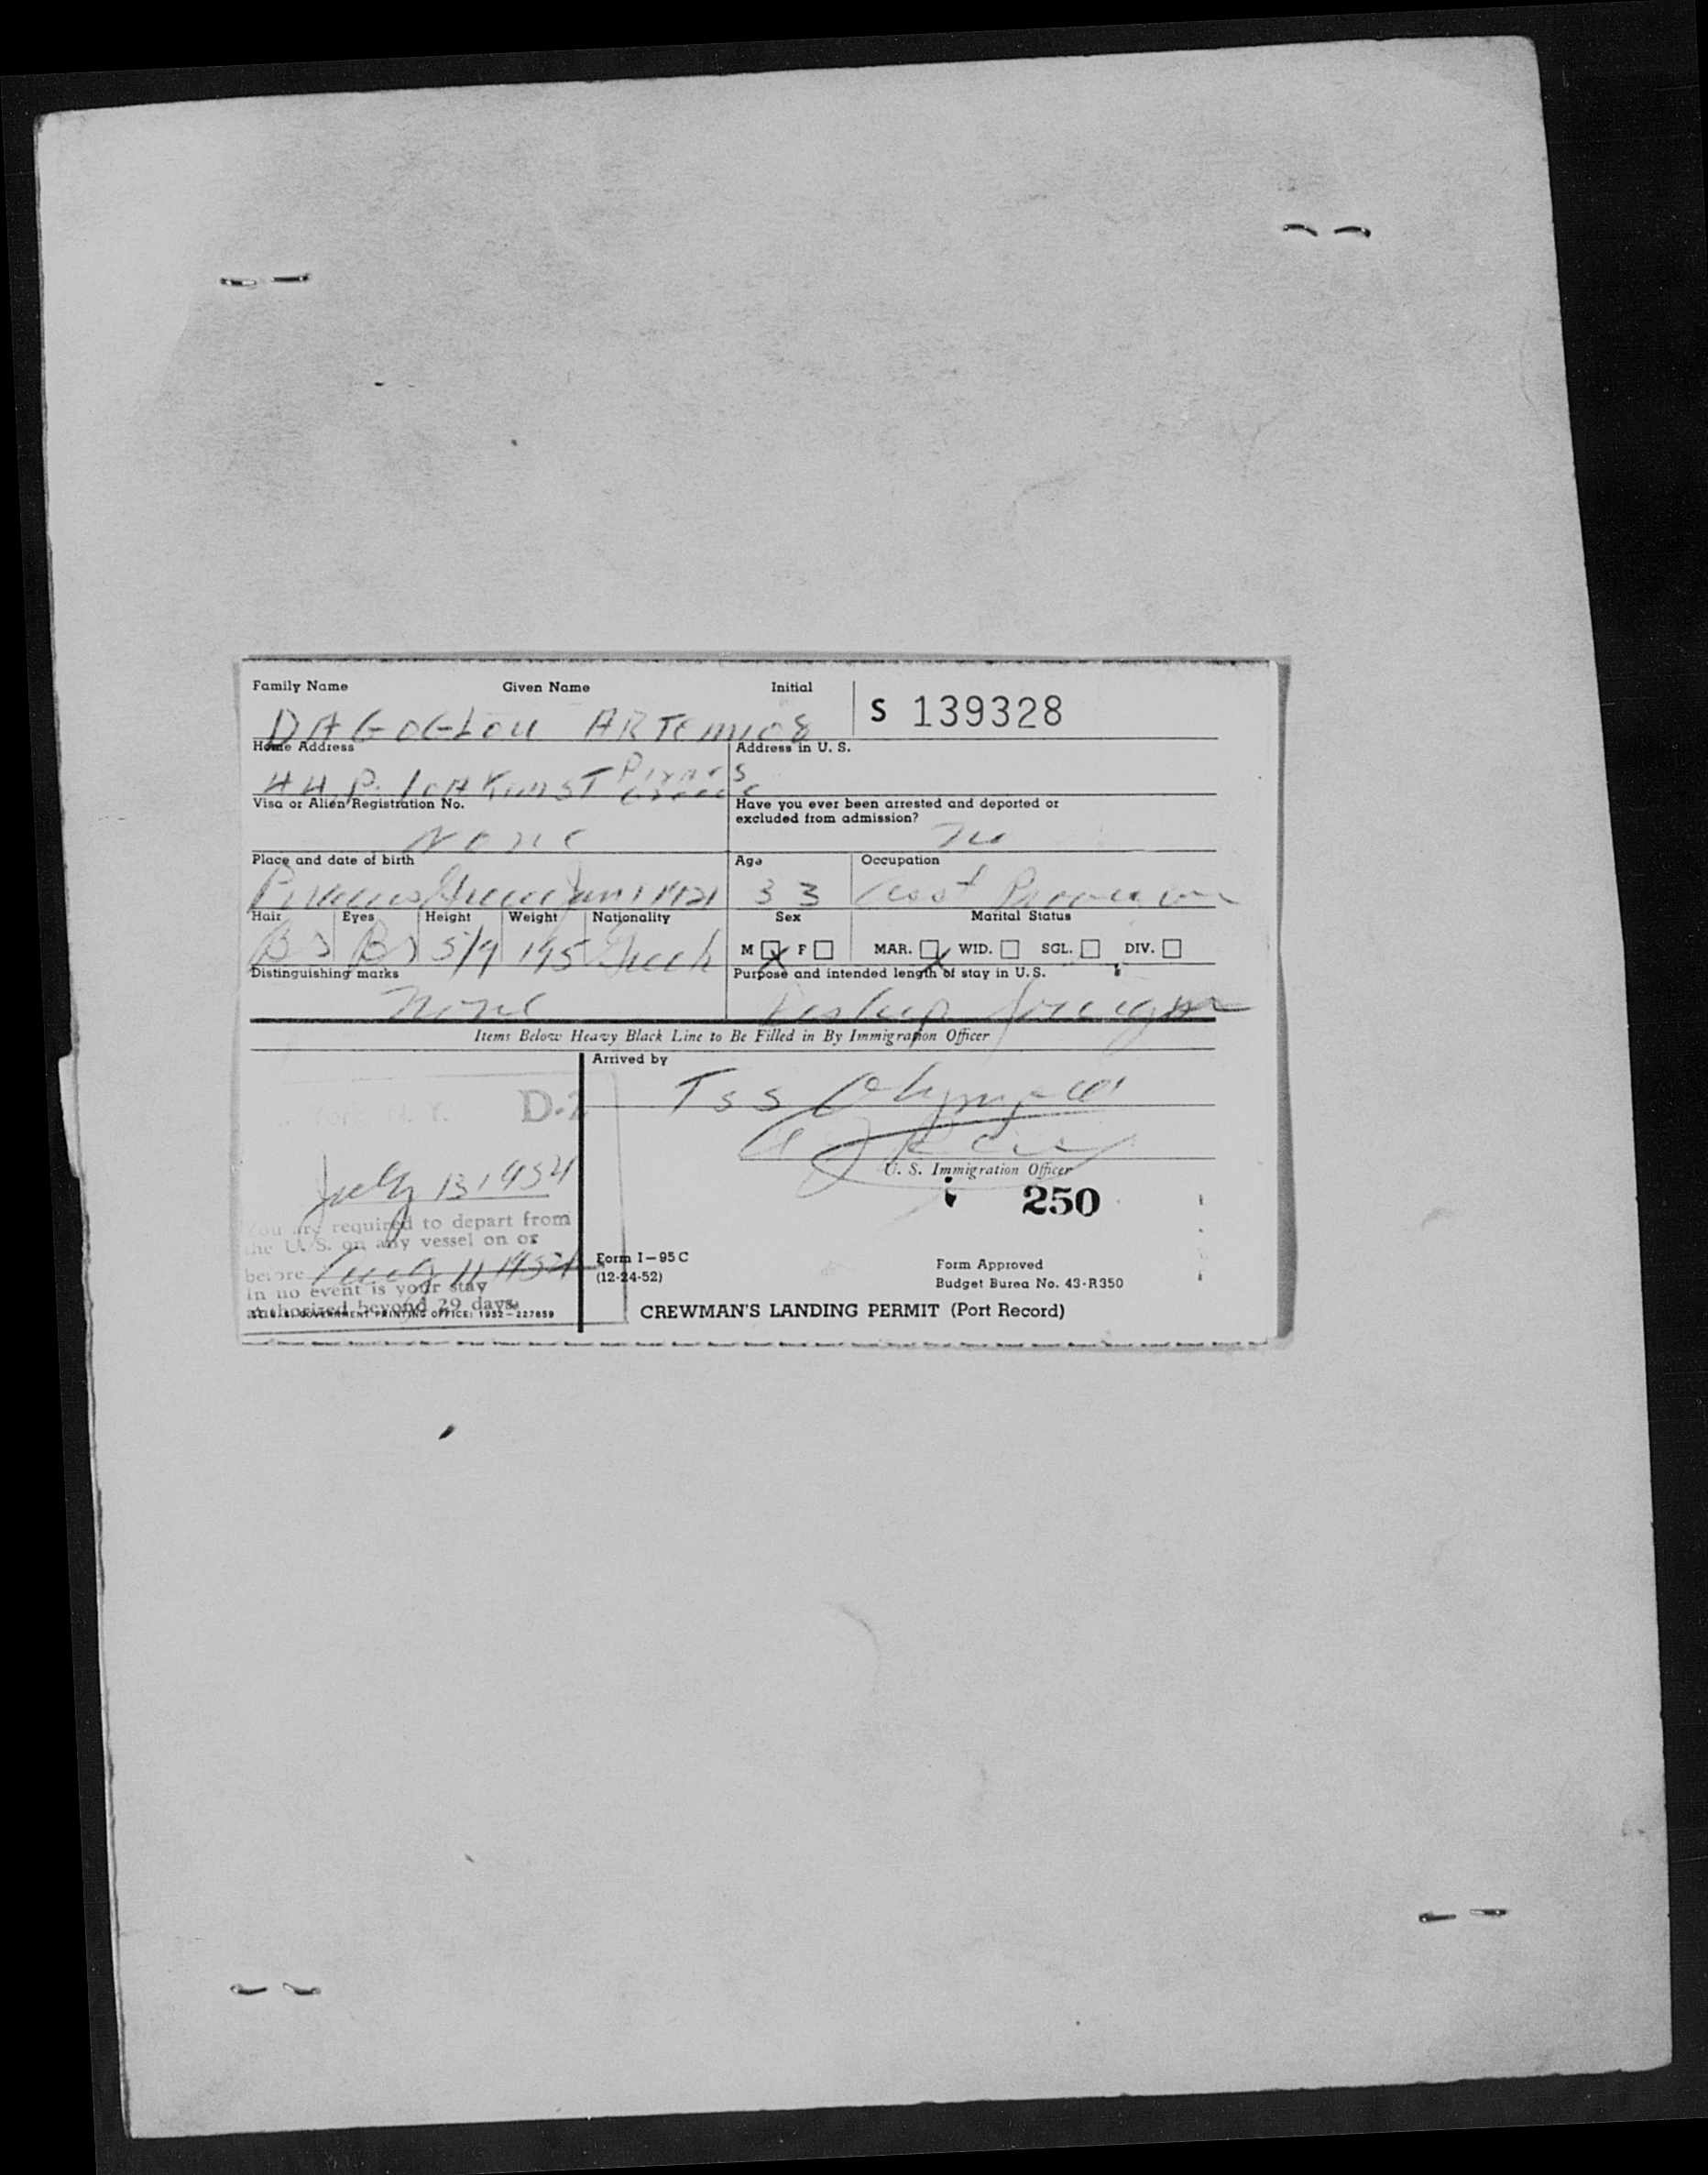 Family Name Given Name Initial
S 139328
DAGOGLOU ARTEMIOS
Home Address Address in U. S.
44 P. ST Pireus
Greece
Visa or Alien Registration No. Have you ever been arrested and deported or
excluded from admission?
None No
Place and date of birth Age Occupation
Piraeus Greece Jan 1 1921 33 Asst
Hair Eyes Height Weight Nationality Sex Marital Status
5/9 195 Greek M X F MAR. X WID. SGL. DIV.
Distinguishing marks Purpose and intended length of stay in U.S.
None Reship foreign
Items Below Heavy Black Line to Be Filled in By Immigration Officer
Arrived by
Tss Olympia
N. Y. D-
U. S. Immigration Officer
July 13 1954
250
You are required to depart from
the U. S. on any vessel on or
before 11 1954
In no event is your stay
authorized beyond 29 days.
U. S. GOVERNMENT PRINTING OFFICE: 1952—227659
Form I—95 C
(12-24-52)
Form Approved
Budget Burea No. 43-R350
CREWMAN'S LANDING PERMIT (Port Record)